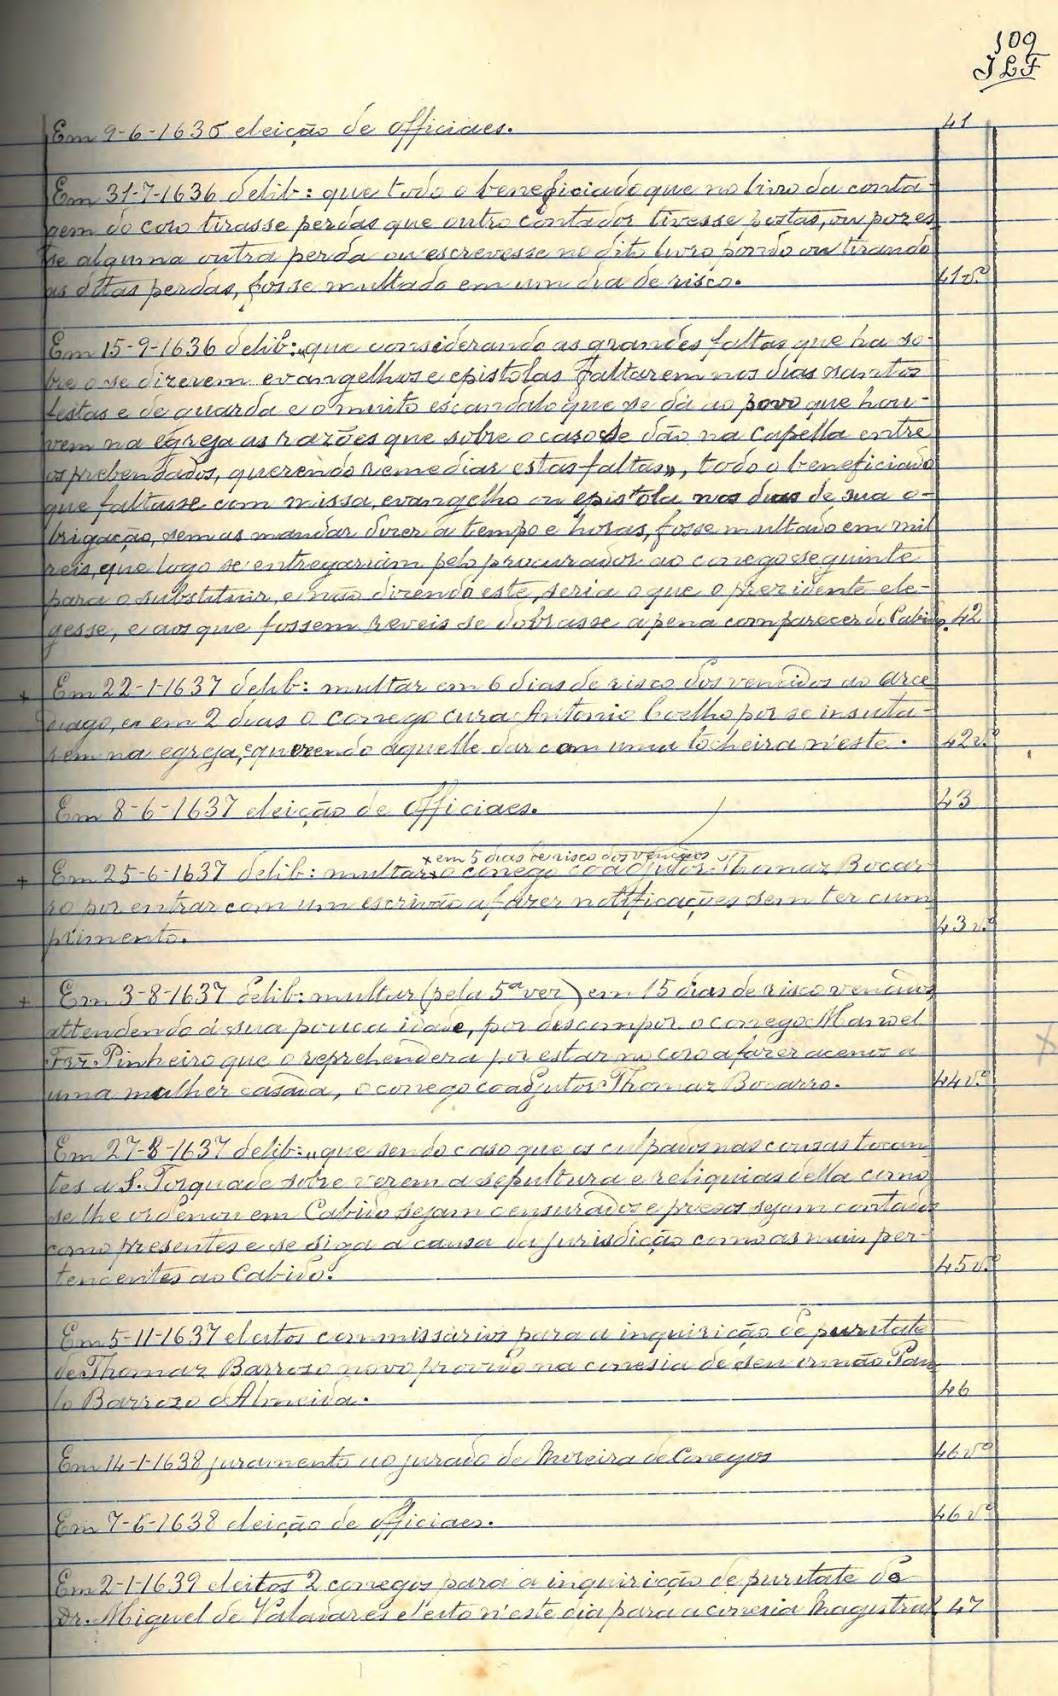 109
JLF
Em 9-6-1636 eleição de officiaes. 41
Em 31-7-1636 delib: que todo o beneficiado que no livro da conta-
gem do coro tirasse perdas que outro contador tivesse postas, ou pozes
se alguma outra perda ou escrevesse no dito livro pondo ou tirando
as ditas perdas, fosse multado em um dia de risco. 41vº
Em 15-9-1636 delib: "que considerando as grandes faltas que ha so-
bre o se dizerem evangelhos e epistolas e faltarem nos dias santos
festas e de guarda e o muito escandalo que se dá ao povo que hou-
vem na egreja as razões que sobre o caso se dão na Capella entre
os prebendados, querendo remedias estas faltas", todo o beneficiado
que faltasse com missa, evangelho ou epistola nos dias de sua o-
brigação, sem as mandar dizer a tempo e horas, fosse multado em mil
reis, que logo se entregariam pelo procurador ao conego seguinte
para o substituir, e não dizendo este, seria o que o prezidente ele-
gesse, e aos que fossem reveis se dobrasse a pena com parecer do Cabido. 42
+ Em 22-1-1637 delib: multar em 6 dias de risco dos vencidos ao arce
diago, e em 2 dias o conego cura Antonio Coelho por se insulta-
rem na egreja, querendo aquelle dar com uma tocheira n'este. 42vº
Em 8-6-1637 eleição de officiaes. 43
x em 5 dias de risco dos vencidos
+ Em 25-6-1637 delib: multar x o conego coadjutor Thomaz Bocar-
ro por entrar com um escrivão a fazer notificações sem ter cum
primento. 43vº
+ Em 3-8-1637 delib: multar (pela 5ª vez) em 15 dias de risco vencidos,
attendendo á sua pouca idade, por descompor o conego Manoel
Frz. Pinheiro que o reprehendera por estar no coro a fazer acenos a
uma mulher casada, o conego coadjutor Thomaz Bocarro. 44vº
Em 27-8-1637 delib: "que sendo caso que os culpados nas cousas tocan
tes a S. Torquade sobre verem a sepultura e reliquias della como
se lhe ordenou em Cabido sejam censurados e presos sejam contados
como presentes e se siga a causa da jurisdição como as mais per-
tencentes ao Cabido. 45vº
Em 5-11-1637 eleitos commissarios para a inquirição de puritate
de Thomaz Barrozo novo provido na conesia de seu irmão Pau
lo Barrozo d'Almeida. 46
Em 14-1-1638 juramento ao jurado de Moreira de Conegos 46vº
Em 7-6-1638 eleição de officiaes. 46vº
Em 2-1-1639 eleitos 2 conegos para a inquirição de puritate do
Dr. Miguel de Valadares eleito n'este dia para a conesia Magistral 47